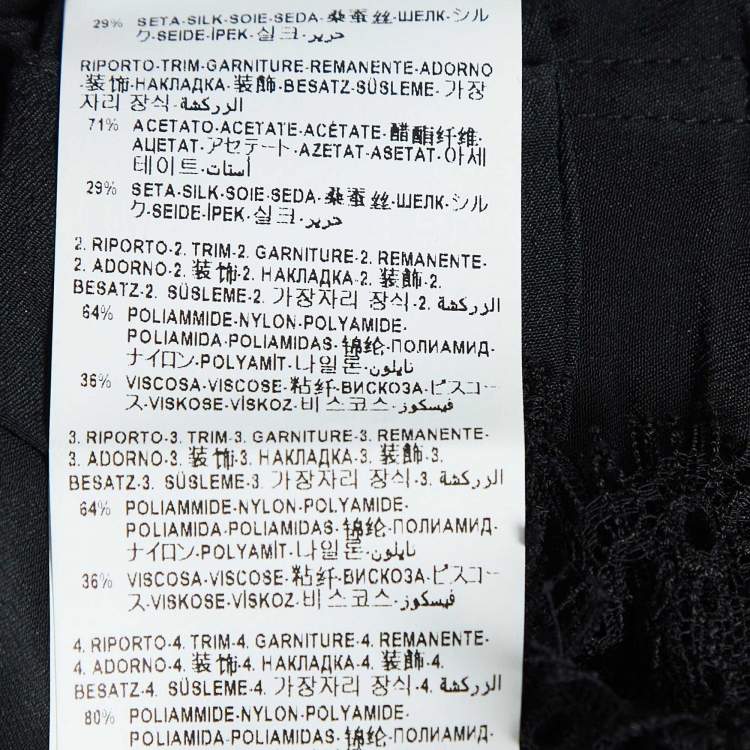 29% SETA-SILK-SOIE-SEDA-桑蚕丝-ШЕЛК-シル
ク-SEIDE-İPEK-실크-حرير
RIPORTO-TRIM-GARNITURE-REMANENTE-ADORNO
-装饰-НАКЛАДКА-装飾-BESATZ-SÜSLEME-가장
자리 장식-الزركشة
71% ACETATO-ACETATE-ACÉTATE-醋酯纤维-
АЦЕТАТ-アセテート-AZETAT-ASETAT-아세
테이트-أستات
29% SETA-SILK-SOIE-SEDA-桑蚕丝-ШЕЛК-シル
ク-SEIDE-İPEK-실크-حرير
2. RIPORTO-2. TRIM-2. GARNITURE-2. REMANENTE-
2. ADORNO-2. 装饰-2. НАКЛАДКА-2. 装飾-2.
BESATZ-2. SÜSLEME-2. 가장자리 장식-2. الزركشة
64% POLIAMMIDE-NYLON-POLYAMIDE-
POLIAMIDA-POLIAMIDAS-锦纶-ПОЛИАМИД-
ナイロン-POLYAMİT-나일론-نايلون
36% VISCOSA-VISCOSE-粘纤-ВИСКОЗА-ビスコー
ス-VISKOSE-VİSKOZ-비스코스-فيسكوز
3. RIPORTO-3. TRIM-3. GARNITURE-3. REMANENTE-
3. ADORNO-3. 装饰-3. НАКЛАДКА-3. 装飾-3.
BESATZ-3. SÜSLEME-3. 가장자리 장식-3. الزركشة
64% POLIAMMIDE-NYLON-POLYAMIDE-
POLIAMIDA-POLIAMIDAS-锦纶-ПОЛИАМИД-
ナイロン-POLYAMİT-나일론-نايلون
36% VISCOSA-VISCOSE-粘纤-ВИСКОЗА-ビスコー
ス-VISKOSE-VİSKOZ-비스코스-فيسكوز
4. RIPORTO-4. TRIM-4. GARNITURE-4. REMANENTE-
4. ADORNO-4. 装饰-4. НАКЛАДКА-4. 装飾-4.
BESATZ-4. SÜSLEME-4. 가장자리 장식-4. الزركشة
80% POLIAMMIDE-NYLON-POLYAMIDE-
POLIAMIDA-POLIAMIDAS-锦纶-ПОЛИАМИД-